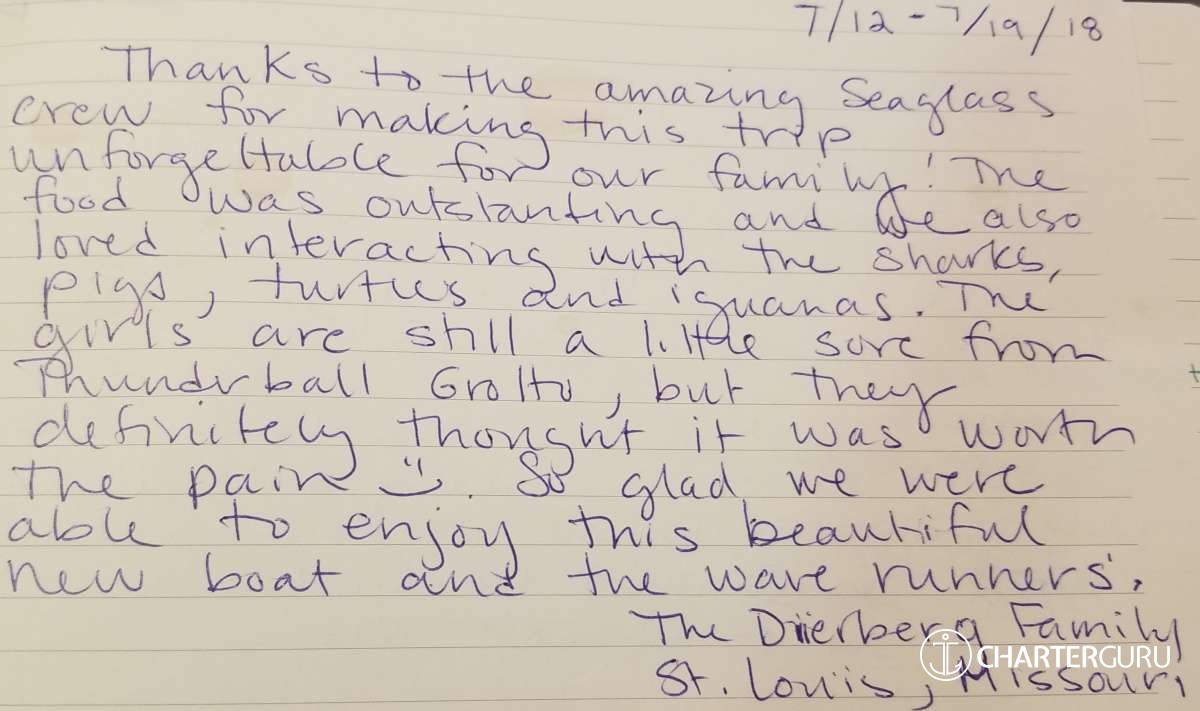 7/12 - 7/19/18
Thanks to the amazing Seaglass
crew for making this trip
unforgettable for our family! The
food was outstanting and we also
loved interacting with the sharks,
pigs, turtles and iguanas. The
girls are still a little sore from
Thunderball Grotto, but they
definitely thought it was worth
the pain :). So glad we were
able to enjoy this beautiful
new boat and the wave runners.
The Drierberg Family
St. Louis, Missouri
CHARTERGURU